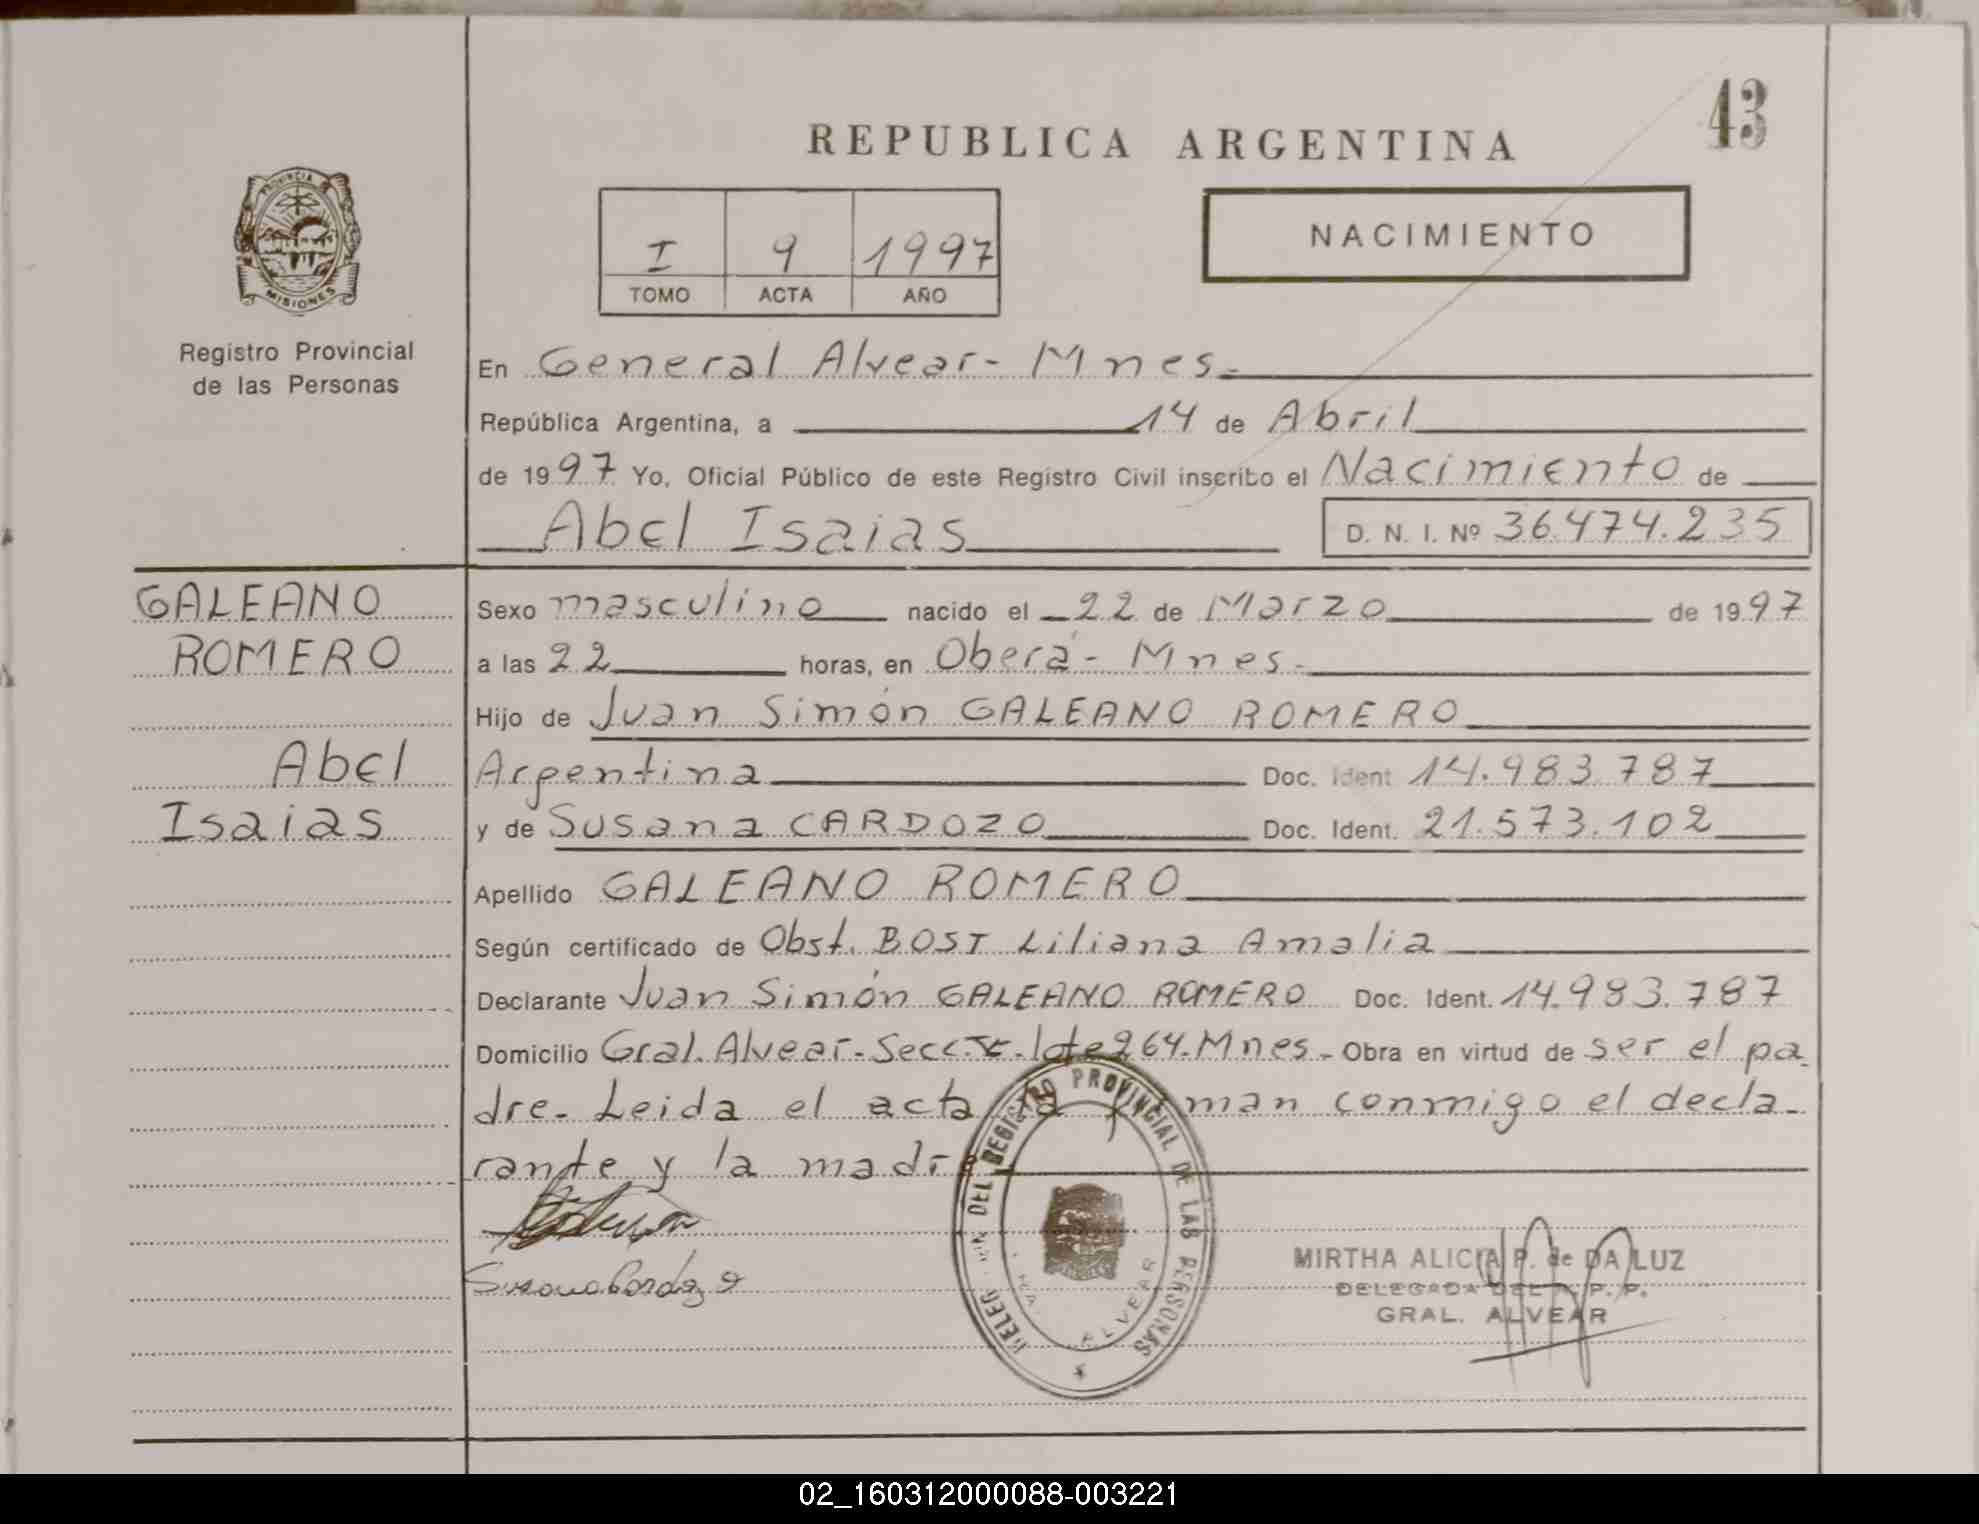 43
REPUBLICA ARGENTINA
PROVINCIA DE
MISIONES
Registro Provincial
de las Personas
I 9 1997
TOMO ACTA AÑO
NACIMIENTO
En General Alvear - Mnes.
República Argentina, a 14 de Abril
de 1997 Yo, Oficial Público de este Registro Civil inscribo el Nacimiento de
Abel Isaias D. N. I. Nº 36.474.235
GALEANO
ROMERO
Abel
Isaias
Sexo masculino nacido el 22 de Marzo de 1997
a las 22 horas, en Oberá - Mnes.
Hijo de Juan Simón GALEANO ROMERO
Argentina Doc. Ident 14.983.787
y de Susana CARDOZO Doc. Ident. 21.573.102
Apellido GALEANO ROMERO
Según certificado de Obst. BOSI Liliana Amalia
Declarante Juan Simón GALEANO ROMERO Doc. Ident. 14.983.787
Domicilio Gral. Alvear - Secc. lote 264. Mnes. Obra en virtud de ser el pa-
dre. Leida el acta la firman conmigo el decla-
rante y la madre
Susana Cardozo
DEL REGISTRO PROVINCIAL DE LAS PERSONAS
ALVEAR
MIRTHA ALICIA P. de DA LUZ
DELEGADA DEL R. P. P.
GRAL. ALVEAR
02_160312000088-003221